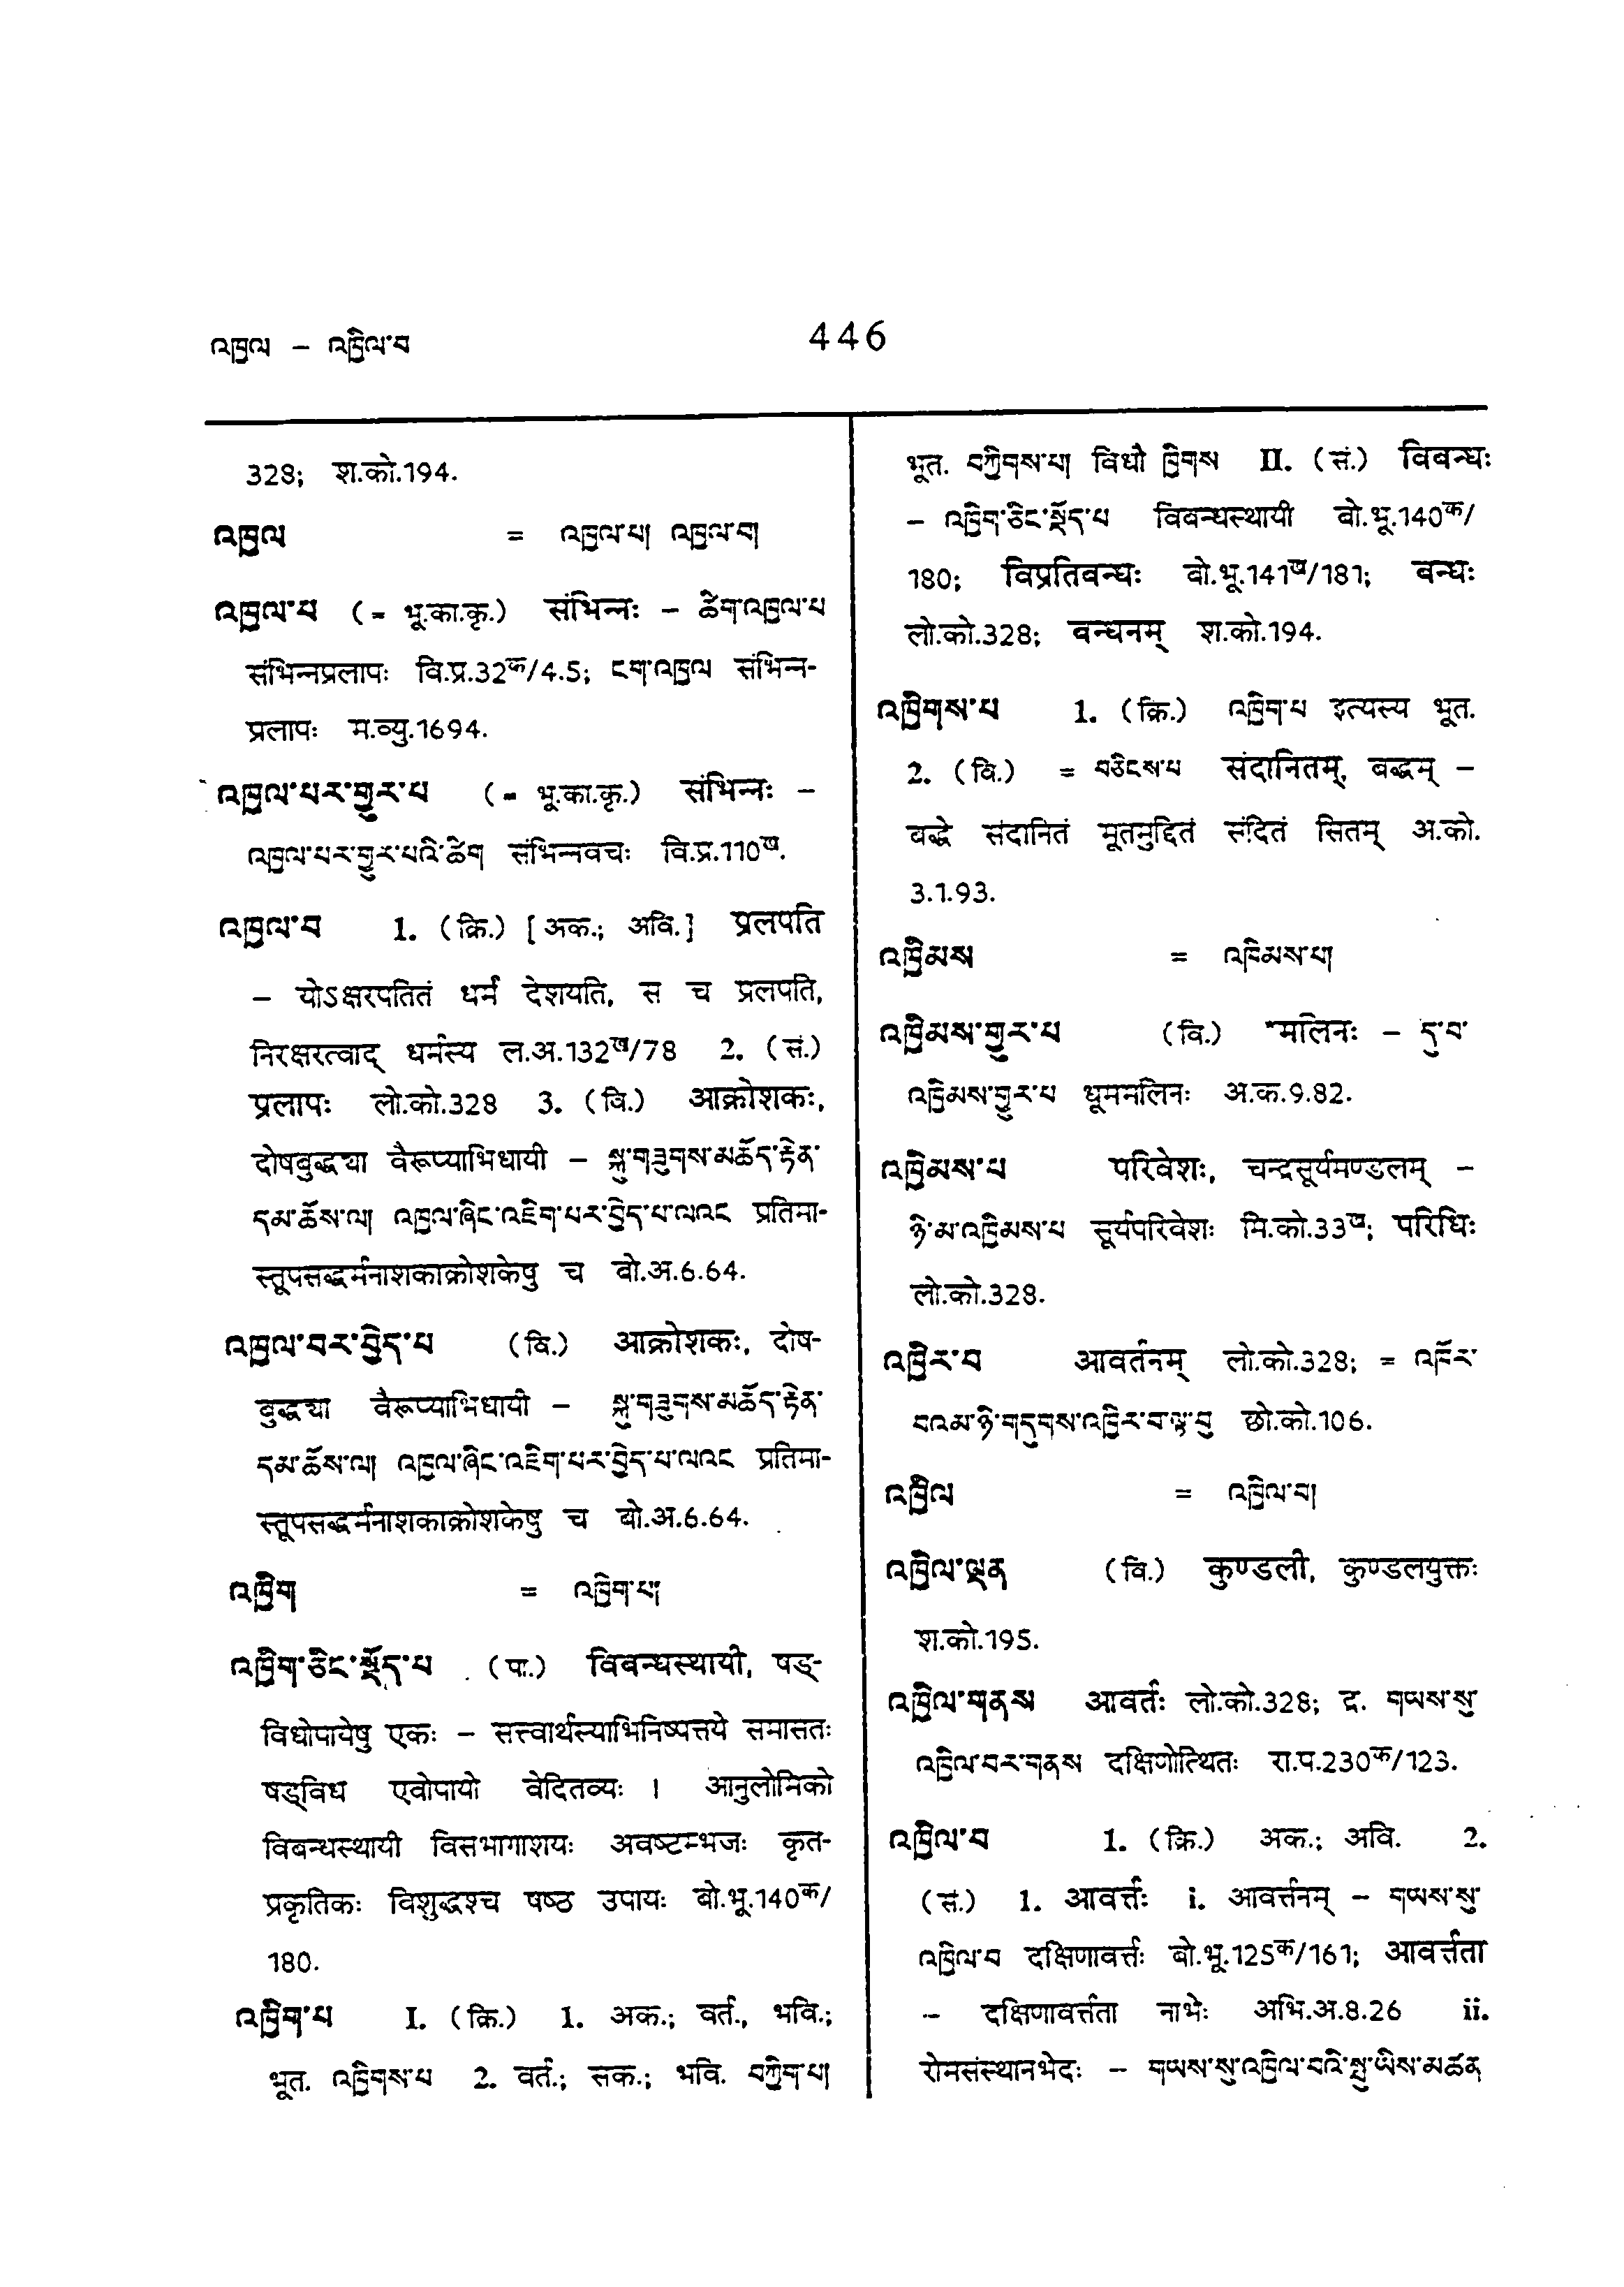 འཁྱལ – འཁྱིལ་བ
446
328; श.को.194.
འཁྱལ = འཁྱལ་པ། འཁྱལ་བ།
འཁྱལ་པ (= भू.का.कृ.) संभिन्नः – ཚིག་འཁྱལ་པ
संभिन्नप्रलापः वि.प्र.32क/4.5; ངག་འཁྱལ संभिन्न-
प्रलापः म.व्यु.1694.
འཁྱལ་པར་གྱུར་པ (= भू.का.कृ.) संभिन्नः –
འཁྱལ་པར་གྱུར་པའི་ཚིག संभिन्नवचः वि.प्र.110ख.
འཁྱལ་བ 1. (क्रि.) [अक.; अवि.] प्रलपति
– योऽक्षरपतितं धर्मं देशयति, स च प्रलपति,
निरक्षरत्वाद् धर्मस्य ल.अ.132ख/78 2. (सं.)
प्रलापः लो.को.328 3. (वि.) आक्रोशकः,
दोषबुद्ध्या वैरूप्याभिधायी – སྐུ་གཟུགས་མཆོད་རྟེན་
དམ་ཆོས་ལ། འཁྱལ་ཞིང་འཇིག་པར་བྱེད་པ་ལའང प्रतिमा-
स्तूपसद्धर्मनाशकाक्रोशकेषु च बो.अ.6.64.
འཁྱལ་བར་བྱེད་པ (वि.) आक्रोशकः, दोष-
बुद्ध्या वैरूप्याभिधायी – སྐུ་གཟུགས་མཆོད་རྟེན་
དམ་ཆོས་ལ། འཁྱལ་ཞིང་འཇིག་པར་བྱེད་པ་ལའང प्रतिमा-
स्तूपसद्धर्मनाशकाक्रोशकेषु च बो.अ.6.64.
འཁྱིག = འཁྱིག་པ།
འཁྱིག་ཅིང་སྡོད་པ (पा.) विबन्धस्थायी, षड्-
विधोपायेषु एकः – सत्त्वार्थस्याभिनिष्पत्तये समासतः
षड्विध एवोपायो वेदितव्यः । आनुलोमिको
विबन्धस्थायी विसभागाशयः अवष्टम्भजः कृत-
प्रकृतिकः विशुद्धश्च षष्ठ उपायः बो.भू.140क/
180.
འཁྱིག་པ I. (क्रि.) 1. अक.; वर्त., भवि.;
भूत. འཁྱིགས་པ 2. वर्त.; सक.; भवि. བཀྱིག་པ།
भूत. བཀྱིགས་པ། विधौ ཁྱིགས II. (सं.) विबन्धः
– འཁྱིག་ཅིང་སྡོད་པ विबन्धस्थायी बो.भू.140क/
180; विप्रतिबन्धः बो.भू.141ख/181; बन्धः
लो.को.328; बन्धनम् श.को.194.
འཁྱིགས་པ 1. (क्रि.) འཁྱིག་པ इत्यस्य भूत.
2. (वि.) = བཅིངས་པ संदानितम्, बद्धम् –
बद्धे संदानितं मूतमुद्दितं संदितं सितम् अ.को.
3.1.93.
འཁྱིམས = འཁིམས་པ།
འཁྱིམས་གྱུར་པ (वि.) *मलिनः – དུ་བ་
འཁྱིམས་གྱུར་པ धूममलिनः अ.क.9.82.
འཁྱིམས་པ परिवेशः, चन्द्रसूर्यमण्डलम् –
ཉི་མ་འཁྱིམས་པ सूर्यपरिवेशः मि.को.33ख; परिधिः
लो.को.328.
འཁྱིར་བ आवर्तनम् लो.को.328; = འཁོར་
བའམ་ཉི་གདུགས་འཁྱིར་བ་ལྟ་བུ छो.को.106.
འཁྱིལ = འཁྱིལ་བ།
འཁྱིལ་ལྡན (वि.) कुण्डली, कुण्डलयुक्तः
श.को.195.
འཁྱིལ་གནས आवर्तः लो.को.328; द्र. གཡས་སུ་
འཁྱིལ་བར་གནས दक्षिणोत्थितः रा.प.230क/123.
འཁྱིལ་བ 1. (क्रि.) अक.; अवि. 2.
(सं.) 1. आवर्त्तः i. आवर्त्तनम् – གཡས་སུ་
འཁྱིལ་བ दक्षिणावर्त्तः बो.भू.125क/161; आवर्त्तता
– दक्षिणावर्त्तता नाभेः अभि.अ.8.26 ii.
रोमसंस्थानभेदः – གཡས་སུ་འཁྱིལ་བའི་སྤུ་ཡིས་མཚན